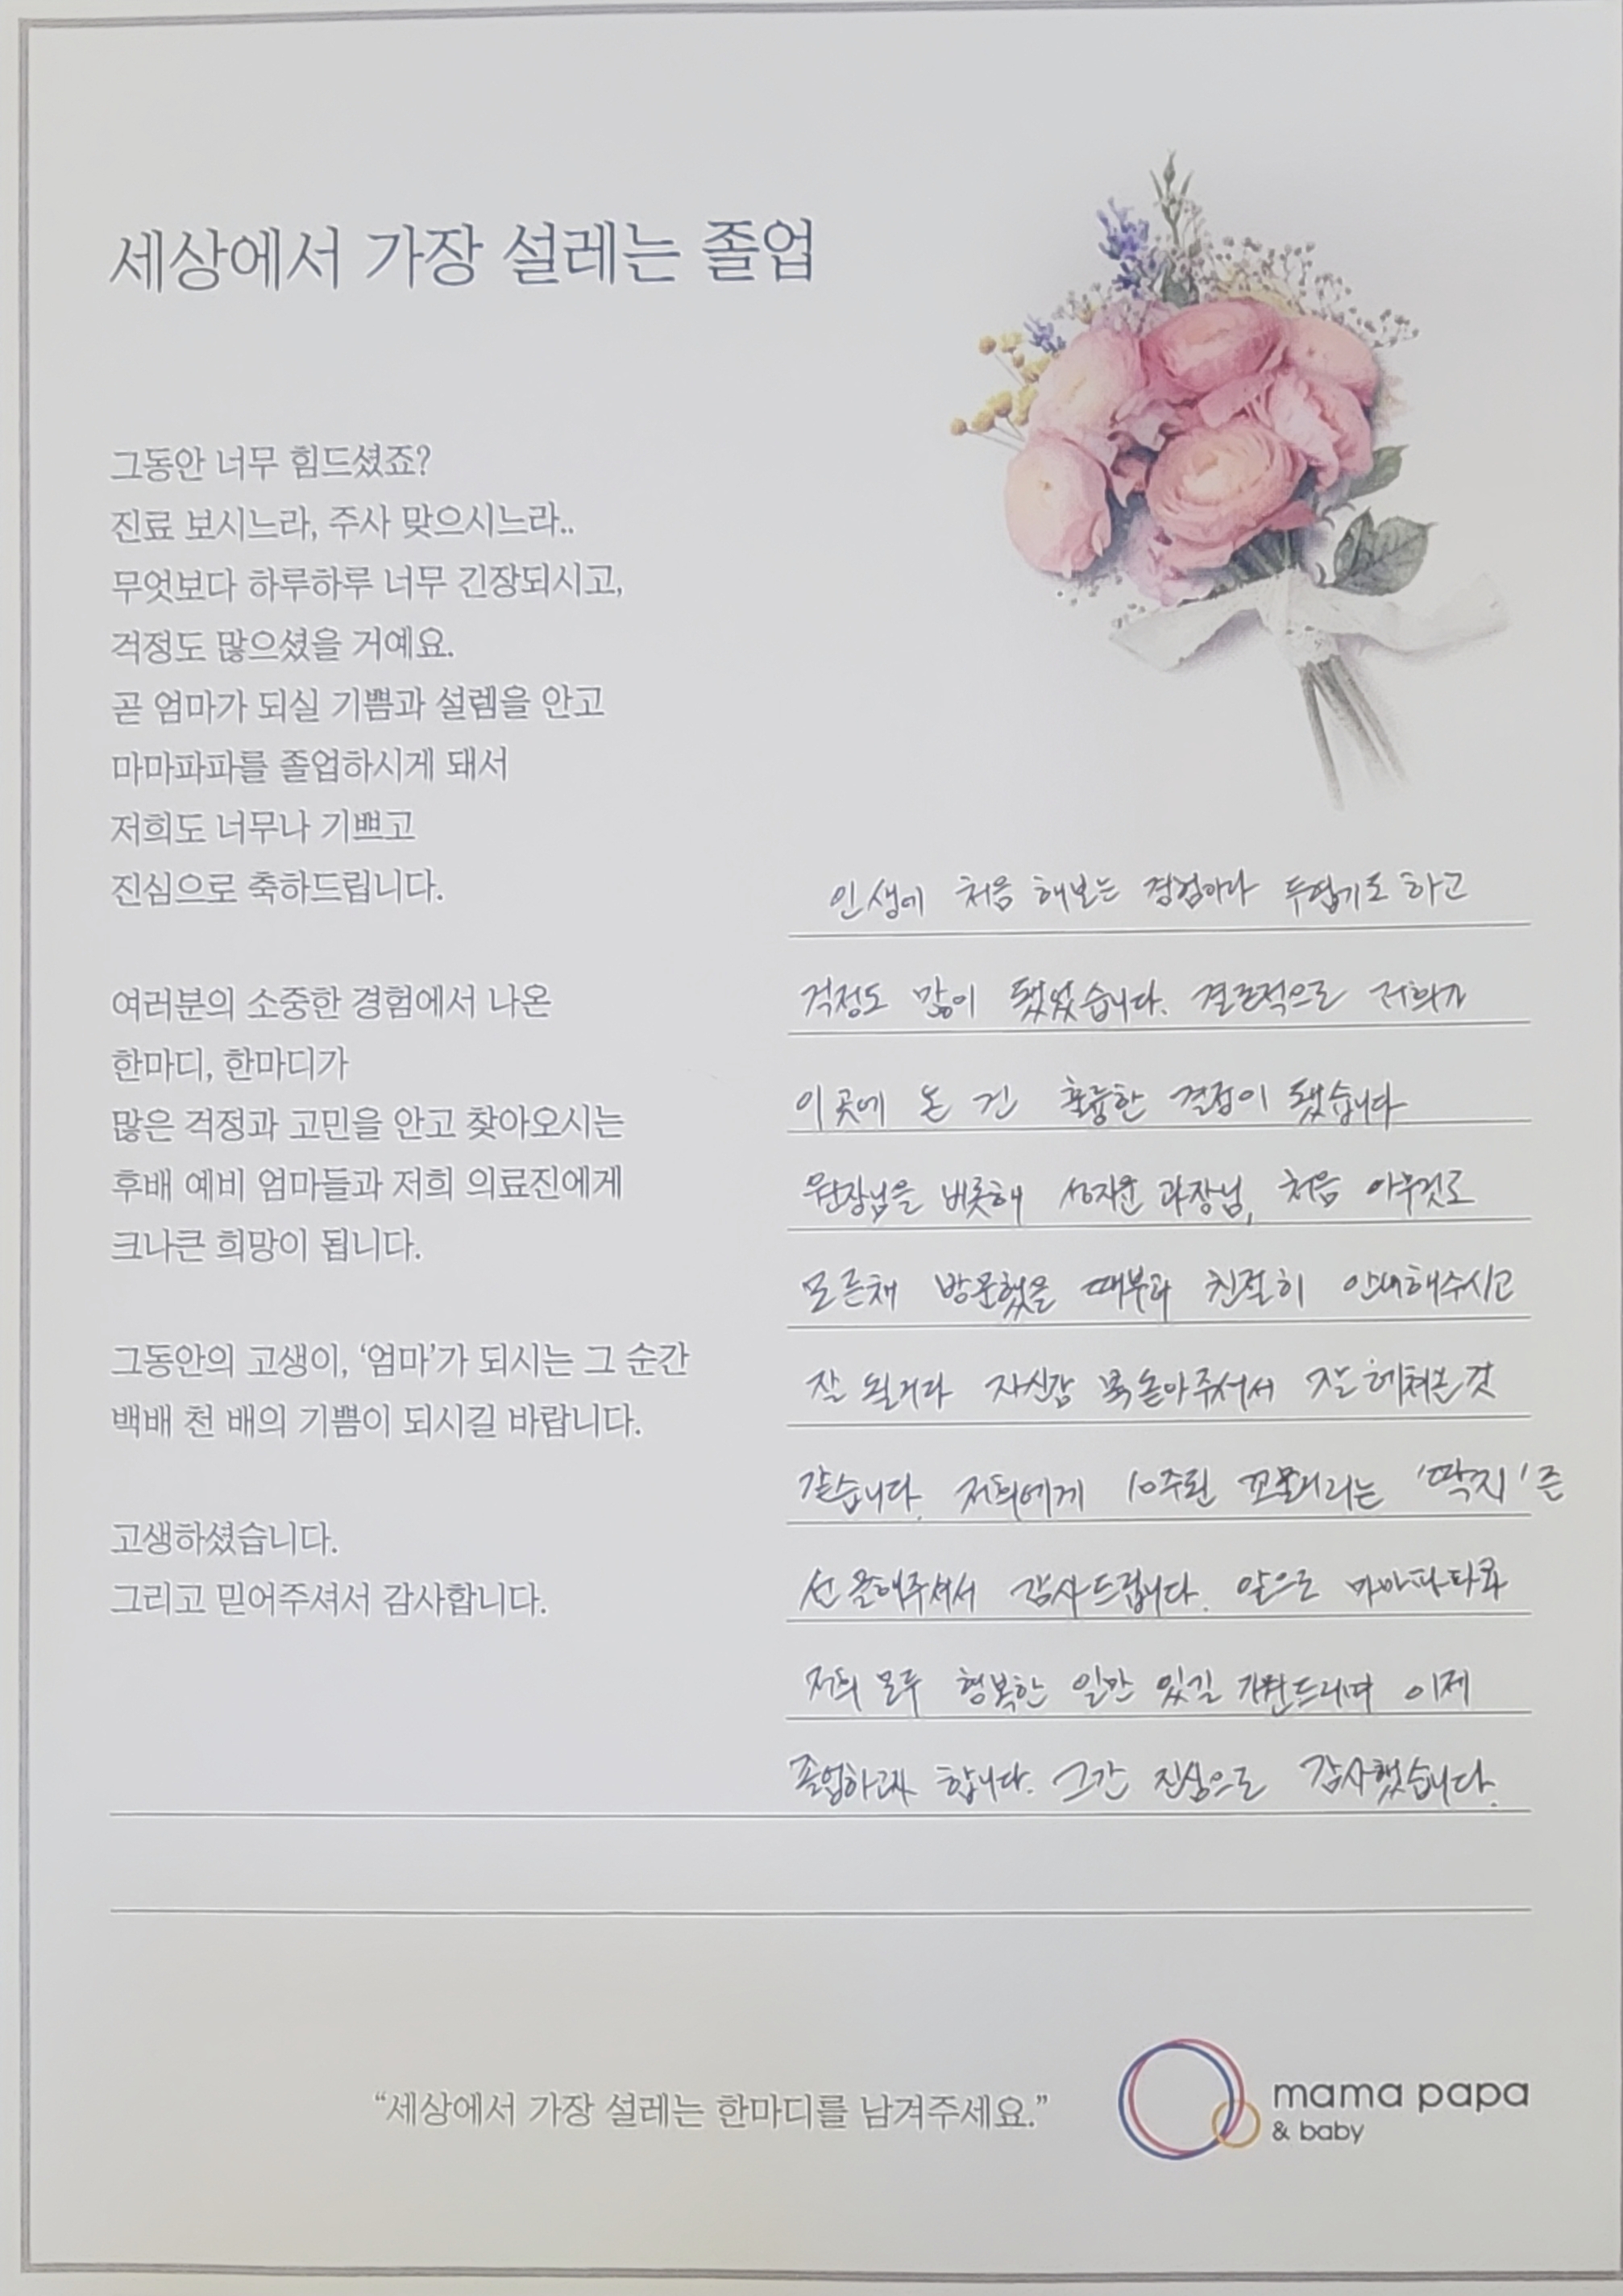 세상에서 가장 설레는 졸업
그동안 너무 힘드셨죠?
진료 보시느라, 주사 맞으시느라..
무엇보다 하루하루 너무 긴장되시고,
걱정도 많으셨을 거예요.
곧 엄마가 되실 기쁨과 설렘을 안고
마마파파를 졸업하시게 돼서
저희도 너무나 기쁘고
진심으로 축하드립니다.
여러분의 소중한 경험에서 나온
한마디, 한마디가
많은 걱정과 고민을 안고 찾아오시는
후배 예비 엄마들과 저희 의료진에게
크나큰 희망이 됩니다.
그동안의 고생이, ‘엄마’가 되시는 그 순간
백배 천 배의 기쁨이 되시길 바랍니다.
고생하셨습니다.
그리고 믿어주셔서 감사합니다.
인생에 처음 해보는 경험이라 두렵기도 하고
걱정도 많이 됐었습니다. 결론적으로 저희가
이곳에 온 건 훌륭한 결정이 됐습니다
원장님을 비롯해 성지윤 과장님, 처음 아무것도
모른채 방문했을 때부터 친절히 안내해주시고
잘 될거라 자신감 북돋아주셔서 잘 헤쳐온 것
같습니다. 저희에게 10주된 꼬물이라는 '딱지'를
선물해주셔서 감사드립니다. 앞으로 마마파파와
저희 모두 행복한 일만 있길 기원드리며 이제
졸업하고자 합니다. 그간 진심으로 감사했습니다.
“세상에서 가장 설레는 한마디를 남겨주세요.”
mama papa
& baby